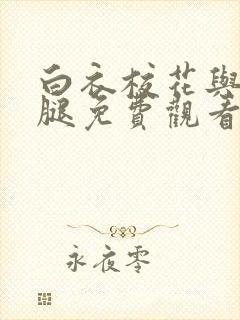 白衣校花與
腿免費觀看
永夜零